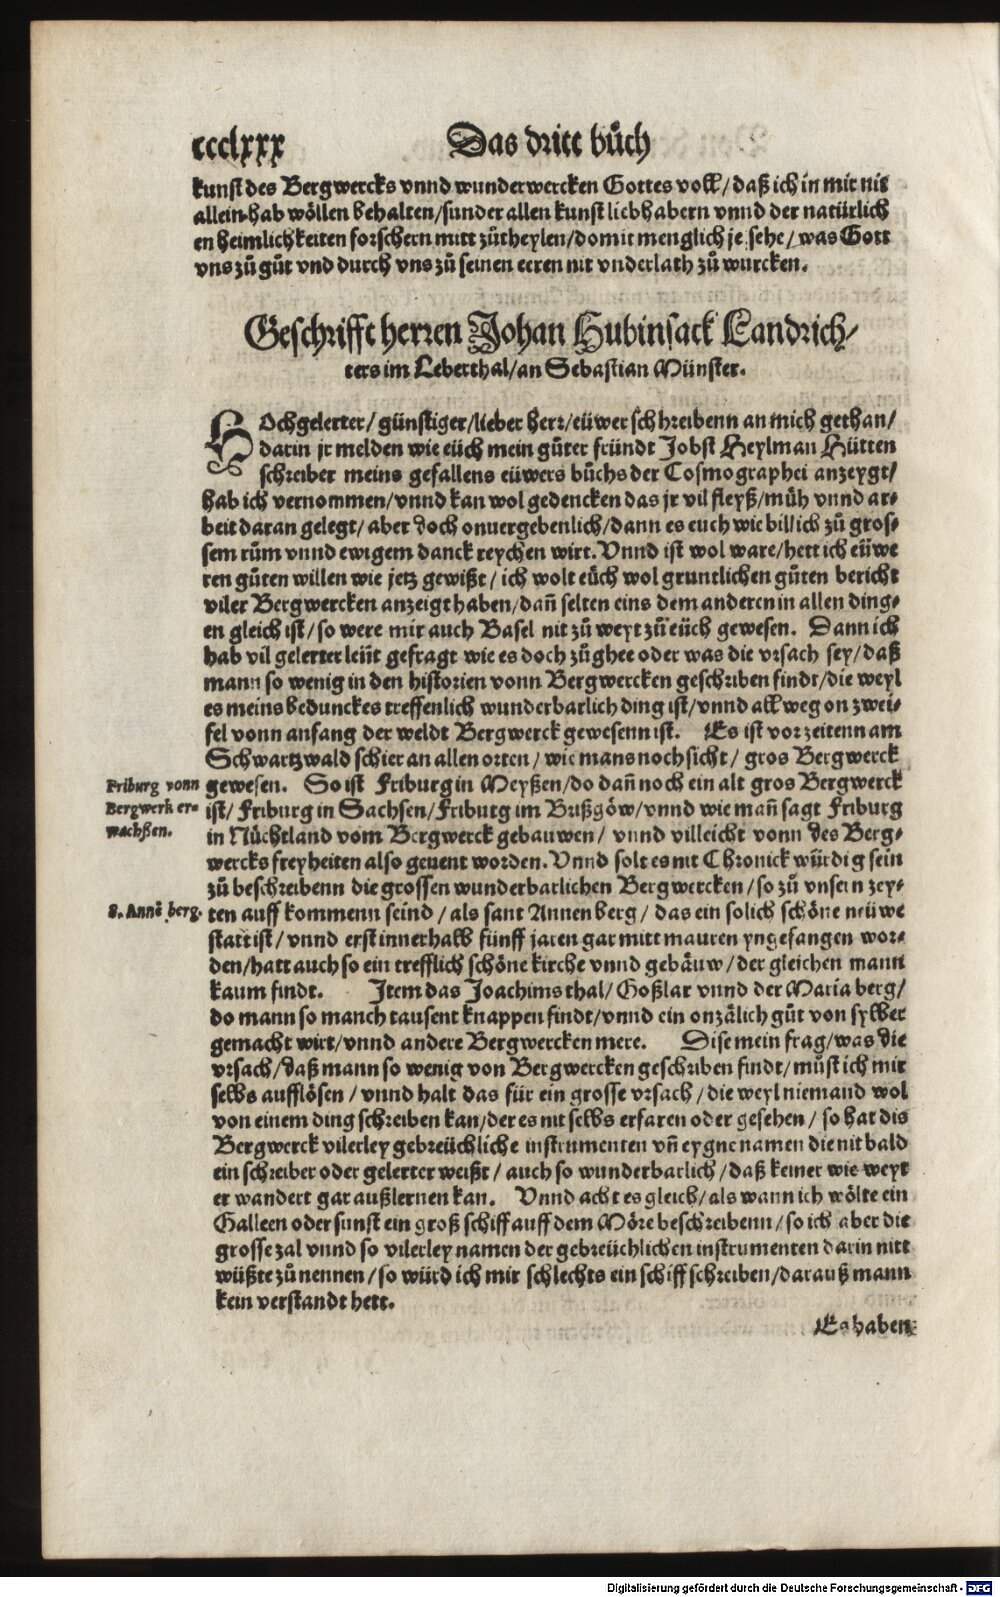 ccclxxx Das dritt bůch
kunst des Bergwercks vnnd wunderwercken Gottes voll/ daß ich in mir nit
allein hab wöllen behalten/sunder allen kunst liebhabern vnnd der natürlich
en heimlichkeiten forschern mitt zůtheylen/domit menglich je sehe/ was Gott
vns zů gůt vnd durch vns zů seinen eeren nit vnderlath zů wurcken.
Geschrifft herren Johan Hubinsack Landrich/
ters im Leberthal/an Sebastian Münster.
HOchgelerter/ günstiger/lieber herr/eüwer schreibenn an mich gethan/
darin jr melden wie eüch mein gůter fründt Jobst Heylman Hütten
schreiber meins gefallens eüwers bůchs der Cosmographei anzeygt/
hab ich vernommen/vnnd kan wol gedencken das jr vil fleyß/müh vnnd ar-
beit daran gelegt/ aber doch onuergebenlich/dann es euch wie billich zů gros-
sem rům vnnd ewigem danck reychen wirt. Vnnd ist wol ware/hett ich eüwe
ren gůten willen wie jetz gewißt/ ich wolt eüch wol gruntlichen gůten bericht
viler Bergwercken anzeigt haben/dañ selten eins dem anderen in allen ding-
en gleich ist/so were mir auch Basel nit zů weyt zů eüch gewesen. Dann ich
hab vil gelerter leüt gefragt wie es doch zůghee oder was die vrsach sey/daß
mann so wenig in den historien vonn Bergwercken geschriben findt/die weyl
es meins bedunckes treffenlich wunderbarlich ding ist/vnnd allweg on zwei-
fel vonn anfang der weldt Bergwerck gewesenn ist. Es ist vorzeitenn am
Schwartzwald schier an allen orten/ wie mans noch sicht/ gros Bergwerck
Friburg vonn
Bergwerk er-
wachßen.
gewesen. So ist Friburg in Meyßen/do dañ noch ein alt gros Bergwerck
ist/ Friburg in Sachsen/Friburg im Bußgöw/vnnd wie mañ sagt Friburg
in Nüchtland vom Bergwerck gebauwen/ vnnd villeicht vonn des Berg-
wercks freyheiten also genent worden. Vnnd solt es nit Chronick würdig sein
zů beschreibenn die grossen wunderbarlichen Bergwercken/so zů vnsern zey-
S. Annē berg.
ten auff kommenn seind/ als sant Annenberg/ das ein solich schöne neüwe
statt ist/ vnnd erst innerhalb fünff jaren gar mitt mauren yngefangen wor-
den/hatt auch so ein trefflich schöne kirche vnnd gebäuw/der gleichen mann
kaum findt. Item das Joachimsthal/ Goßlar vnnd der Maria berg/
do mann so manch tausent knappen findt/vnnd ein onzälich gůt von sylber
gemacht wirt/vnnd andere Bergwercken mere. Dise mein frag/was die
vrsach/daß mann so wenig von Bergwercken geschriben findt/můst ich mir
selbs aufflösen/ vnnd halt das für ein grosse vrsach/die weyl niemand wol
von einem ding schreiben kan/der es nit selbs erfaren oder gesehen/ so hat dis
Bergwerck vilerley gebreüchliche instrumenten vñ eygne namen die nit bald
ein schreiber oder gelerter weißt/ auch so wunderbarlich/daß keiner wie weyt
er wandert gar außlernen kan. Vnnd acht es gleich/als wann ich wölte ein
Galleen oder sunst ein groß schiff auff dem Möre beschreibenn/so ich aber die
grosse zal vnnd so vilerley namen der gebreüchlichen instrumenten darin nitt
wüßte zů nennen/so würd ich mir schlechts ein schiff schreiben/darauß mann
kein verstandt hett.
Es haben
Digitalisierung gefördert durch die Deutsche Forschungsgemeinschaft - DFG